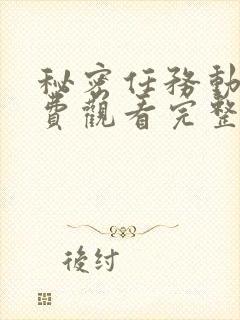 秘密任務動
費觀看完整
後紂